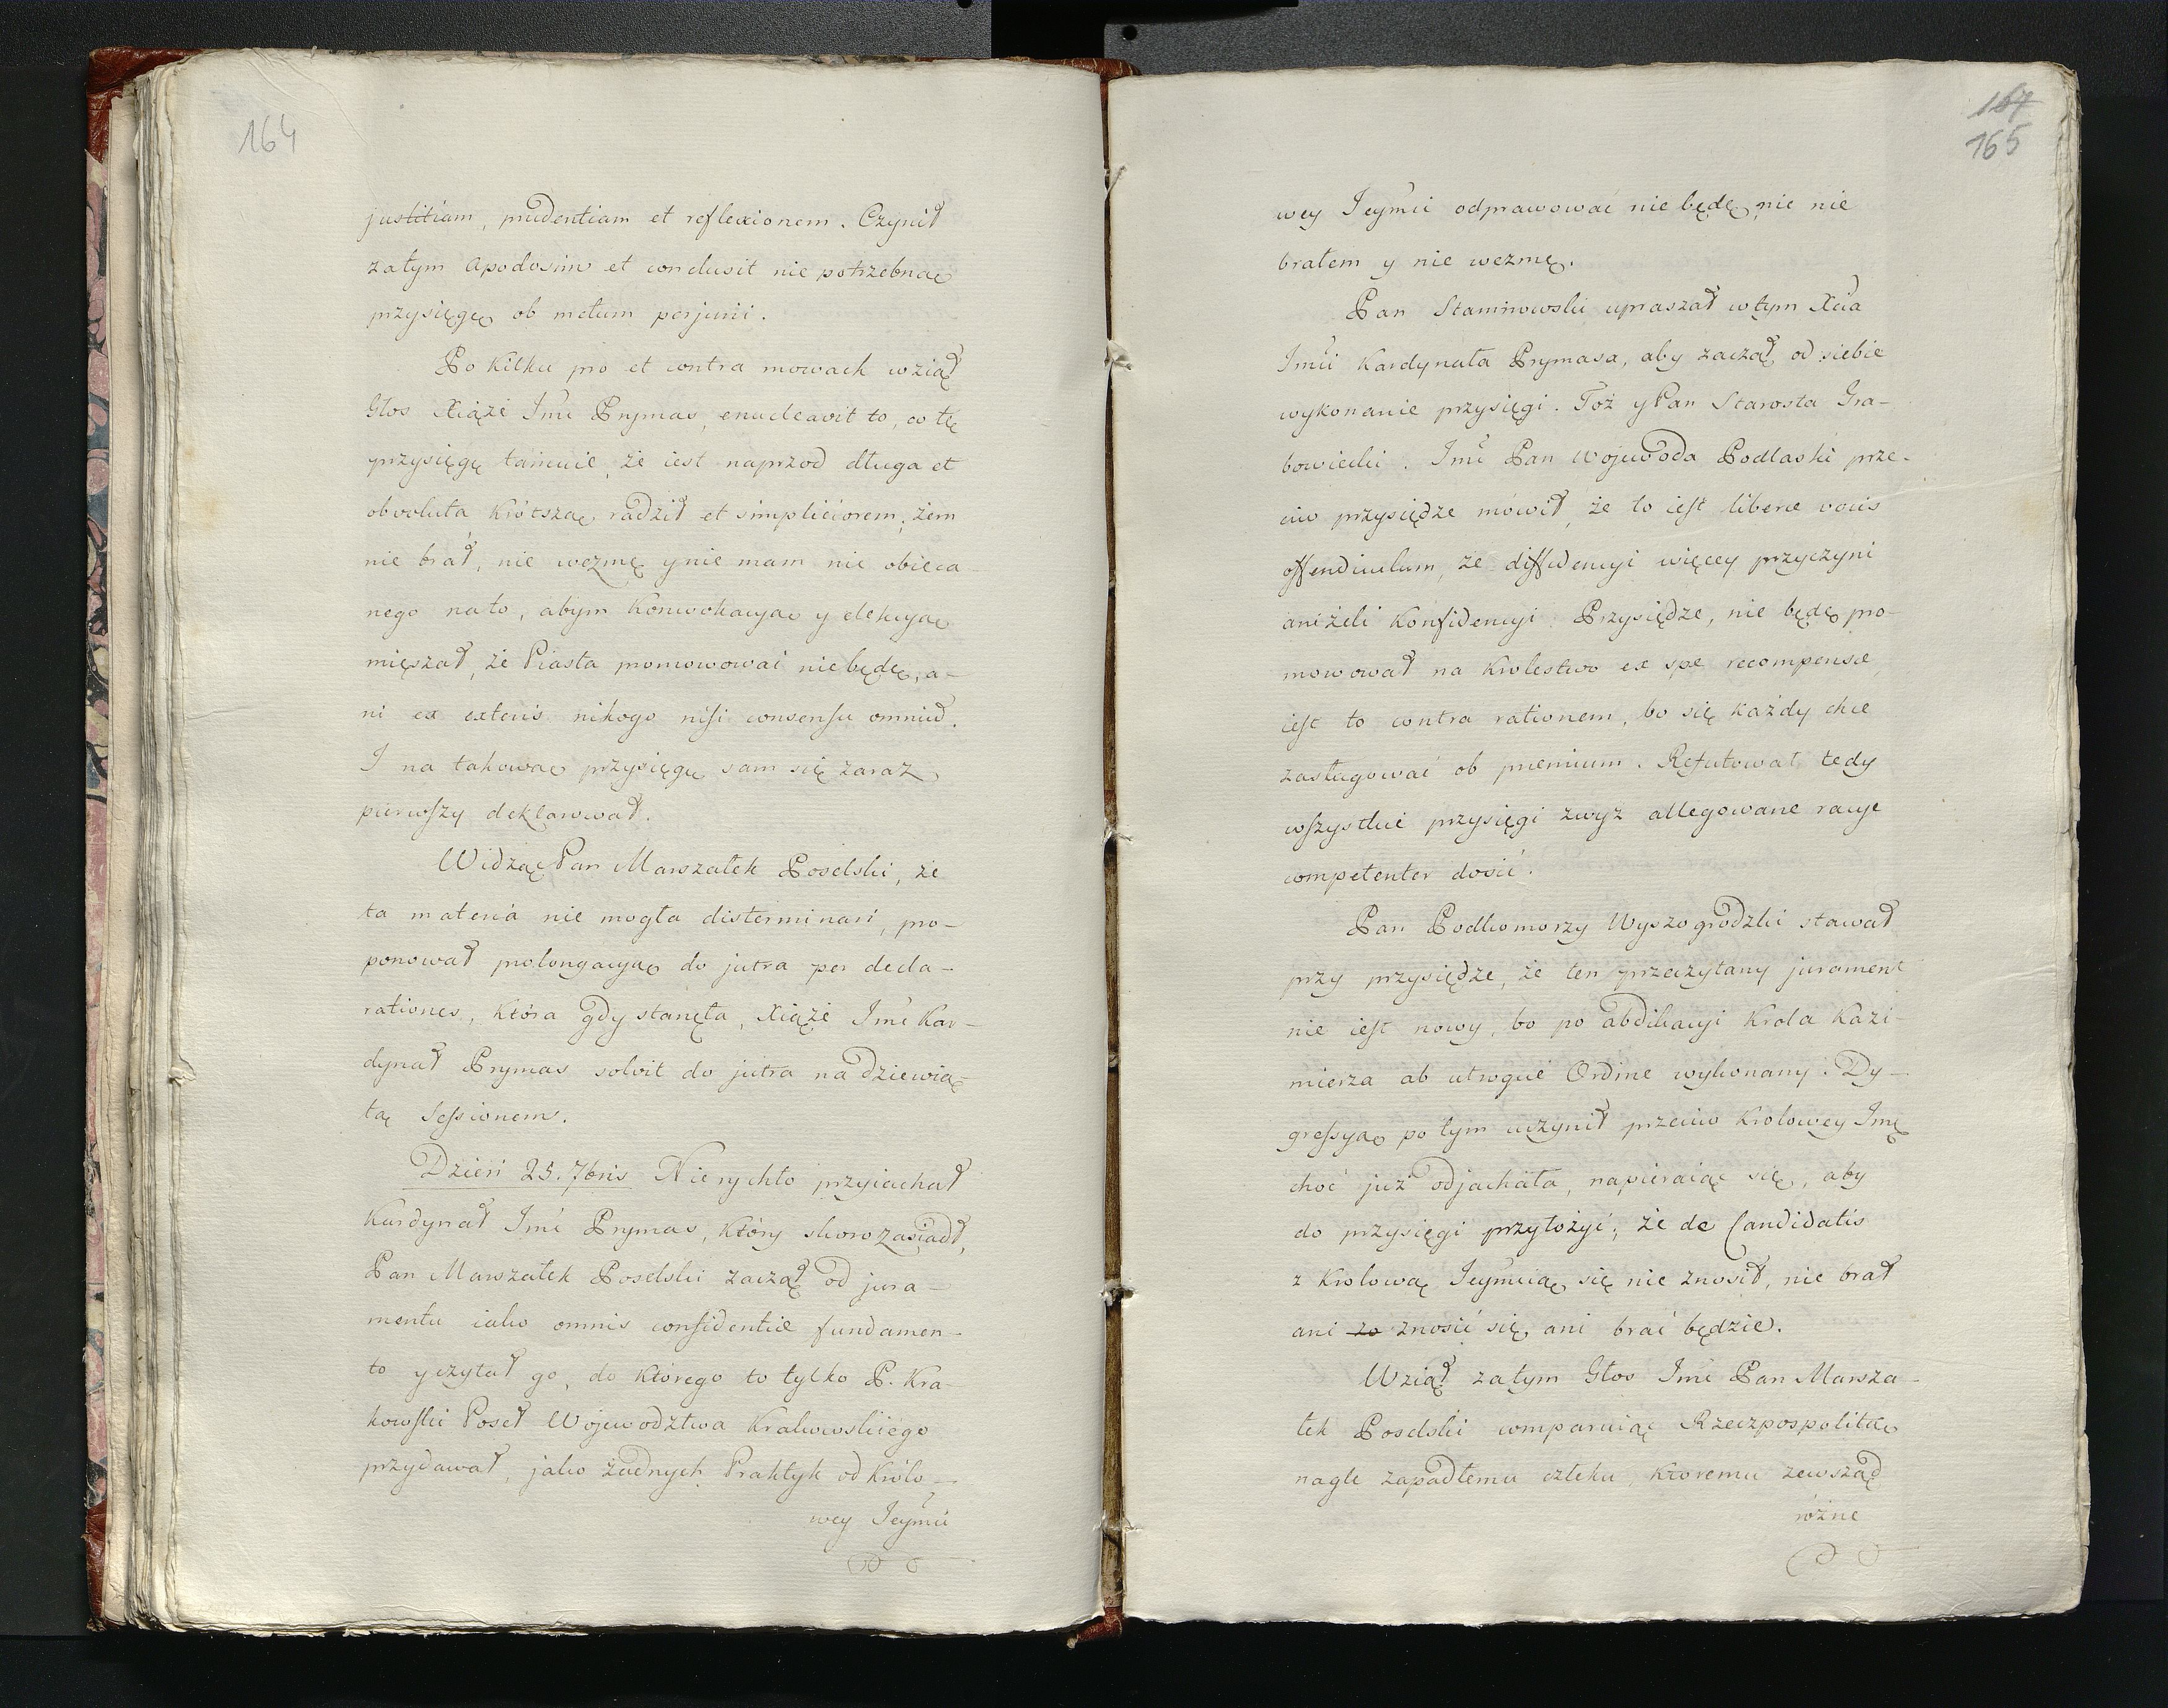 164
justitiam, prudentiam et reflexionem. Czynił
zatym apodosim et conclusit nie potrzebną
przysięgę ob metum perjurii.
Po kilku pro et contra mowach wziął
Głos Xiąże Jmć Prymas, enucleavit to, co tę
przysięgę tamuie, że iest naprzod długa et
obvoluta krótszą, radził et simpliciorem, żem
nie brał, nie wezmę y nie mam nic obieca-
nego na to, abym konwokacyą y elekcyą
mięszał, że Piasta promowować nie będę, a-
ni ex exteris nikogo nisi consensu omniũ.
I na takową przysięgę sam się zaraz
pierwszy deklarował.
Widząc Pan Marszałek Poselski, że
ta materia nie mogła disterminari, pro-
ponował prolongacyą do jutra per decla-
rationes, która gdy stanęła, Xiąże Jmć Kar-
dynał Prymas solvit do jutra na dziewią-
tą Sessionem.
Dzień 25. 7bris Nie rychło przyiachał
Kardynał Jmć Prymas, który skoro zasiadł,
Pan Marszałek Poselski zaczął od jura-
mentu iako omnis confidentiæ fundamen-
to y czytał go, do którego to tylko P. Kra-
kowski Poseł Województwa Krakowskiego
przydawał, jako żadnych Praktyk od Krolo-
wey Jeymći
167
165
wey Jeymći odprawować nie będę, nic nie
brałem y nie wezmę.
Pan Staminowski upraszał w tym Xcia
Jmći Kardynała Prymasa, aby zaczął od siebie
wykonanie przysięgi. Toż y Pan Starosta Gra-
bowiecki. Jmć Pan Wojewoda Podlaski prze-
ciw przysiędze mówił, że to iest liberæ vocis
offendiculum, że diffidencyi więcey przyczyni
aniżeli konfidencyi. Przysiędze, nie będę pro-
mowował na Krolestwo ex spe recompensæ,
iest to contra rationem, bo się każdy chce
zasługować ob præmium. Refutował tedy
wszystkie przysięgi zwyż allegowane racye
competenter dosić.
Pan Podkomorzy Wyszogrodzki stawał
przy przysiędze, że ten przeczytany jurament
nie iest nowy, bo po abdikacyi Krola Kazi-
mierza ab utroque Ordine wykonany. Dy-
gressyą po tym uczynił przeciw Krolowey Jmę
choć już odjachała, napieraiąc się, aby
do przysięgi przyłożyć, że de Candidatis
z Krolową Jeymcią się nie znosił, nie brał
ani zo znosić się, ani brać będzie.
Wziął zatym Głos Jmć Pan Marsza-
łek Poselski comparuiąc Rzeczpospolitą
nagle zapadłemu człeku, ktoremu zewsząd
różne